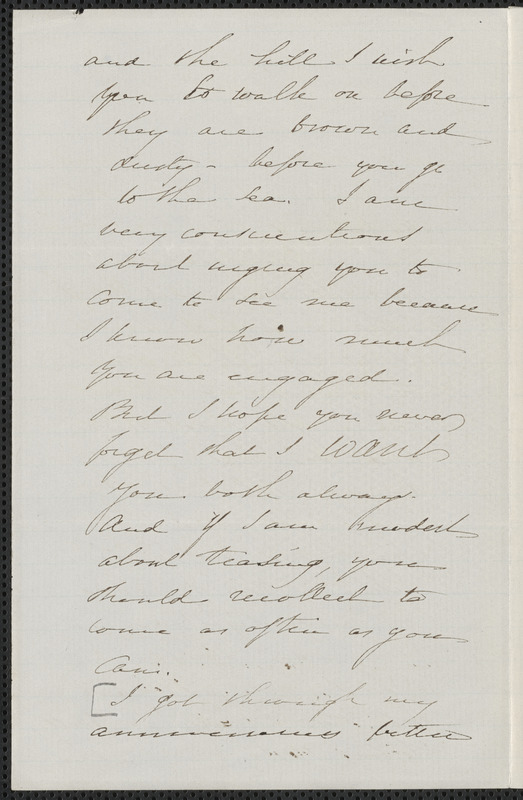 and the hill I wish
you to walk on before
they are brown and
dusty - before you go
to the sea. I am
very conscientious
about urging you to
come to see me because
I know how much
you are engaged.
But I hope you never
forget that I want
you both always.
And if I am modest
about teasing, you
should recollect to
come as often as you
can.
[I got through my
anniversaries better